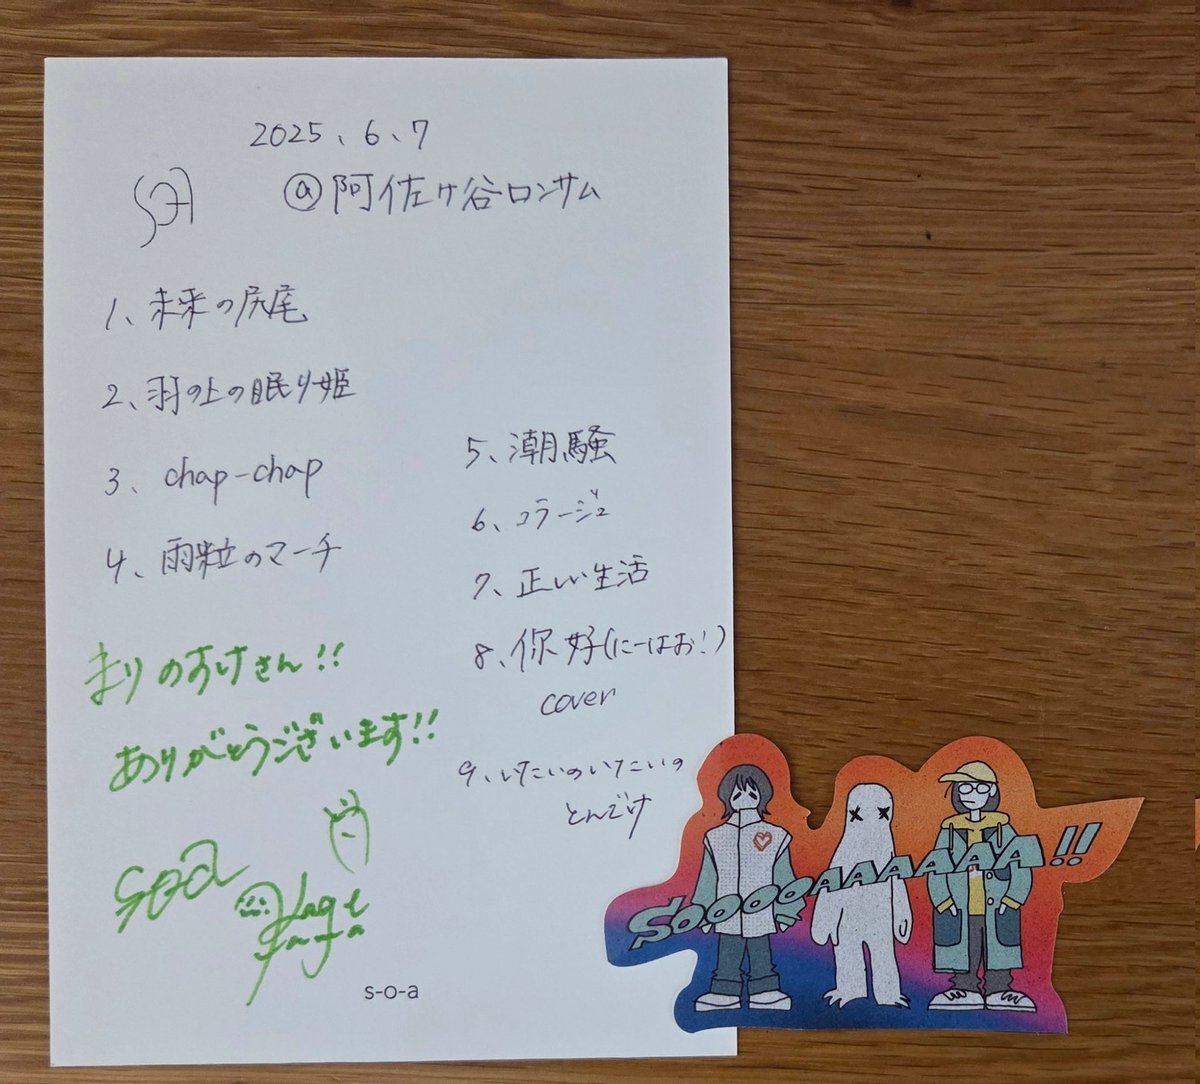 2025、6、7
soa
@阿佐ヶ谷ロンサム
1、未来の尻尾
2、羽の上の眠り姫
3、chap-chap
4、雨粒のマーチ
5、潮騒
6、コラージュ
7、正しい生活
8、你好(にーはお!)
cover
9、いたいのいたいの
とんでけ
まりのすけさん!!
ありがとうございます!!
soa
s-o-a
SOOOOAAAAAAA!!